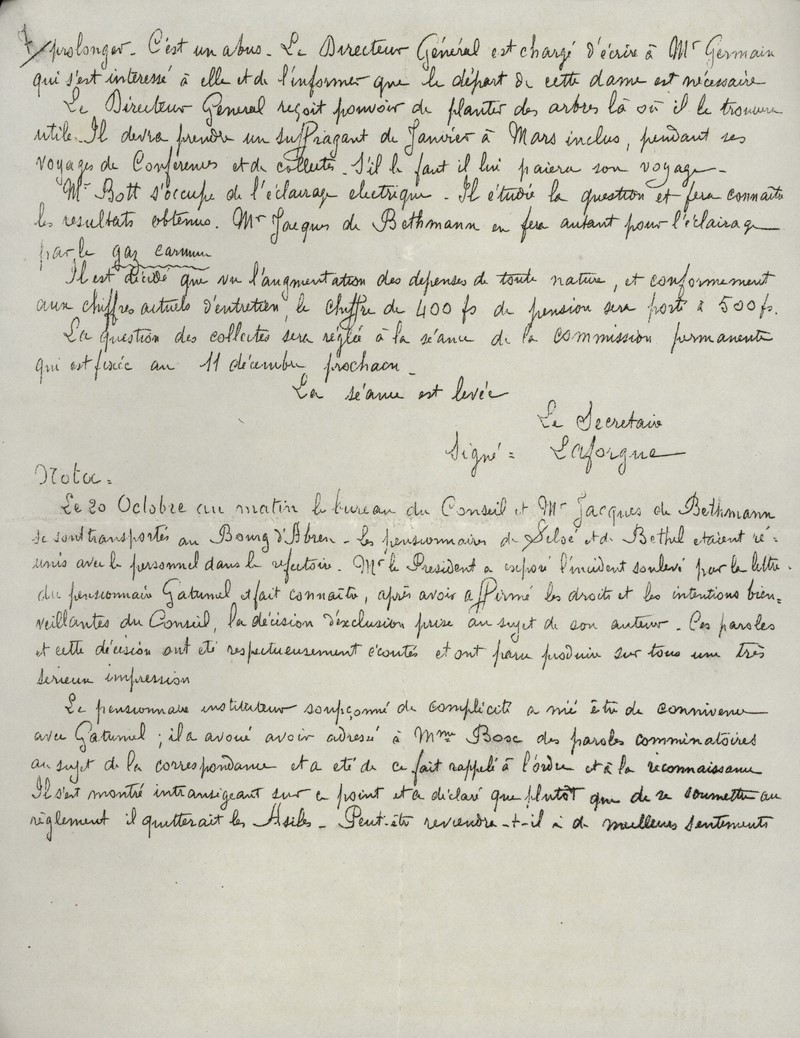 prolonger. C'est un abus. Le Directeur Général est chargé d'écrire à Mr Germain
qui s'est interessé à elle et de l'informer que le départ de cette dame est nécessaire
Le Directeur General reçoit pouvoir de planter des arbres là où il le trouvera
utile. Il devra prendre un suffragant de Janvier à Mars inclus, pendant ses
voyages de Conférences et de collectes. S'il le faut il lui paiera son voyage.
Mr Bott s'occupe de l'éclairage electrique. Il étudie la question et fera connaitre
les resultats obtenus. Mr Jacques de Bethmann en fera autant pour l'éclairage
par le gaz
Il est décidé que vu l'augmentation des depenses de toute nature, et conformement
aux chiffres actuels d'entretien, le chiffre de 400 fs de pension sera porté à 500 fs.
La question des collectes sera réglée à la séance de la commission permanente
qui est fixée au 11 décembre prochain.
La séance est levée
Le Secretaire
Signé = Laforgue
Nota =
Le 20 Octobre au matin le bureau du Conseil et Mr Jacques de Bethmann
se sont transportés au Bourg d'Abren - les pensionnaires de Siloé et de Bethel etaient ré=
unis avec le personnel dans le refectoire. Mr le President a exposé l'incident soulevé par la lettre
du pensionnaire Gatumel et fait connaître, après avoir affirmé les droits et les intentions bien=
veillantes du Conseil, la décision d'exclusion prise au sujet de son auteur. Ces paroles
et cette décision ont été respectueusement écoutés et ont paru produire sur tous une très
serieuse impression
Le pensionnaire instituteur soupçonné de complicité a nié être de connivence
avec Gatumel ; il a avoué avoir adressé à Mme Bosc des paroles comminatoires
au sujet de la correspondance et a été de ce fait rappelé à l'ordre et à la reconnaissance
Il s'est montré intransigeant sur ce point et a déclaré que plutôt que de se soumettre au
règlement il quitterait les Asiles. Peut-être reviendra-t-il à de meilleurs sentiments